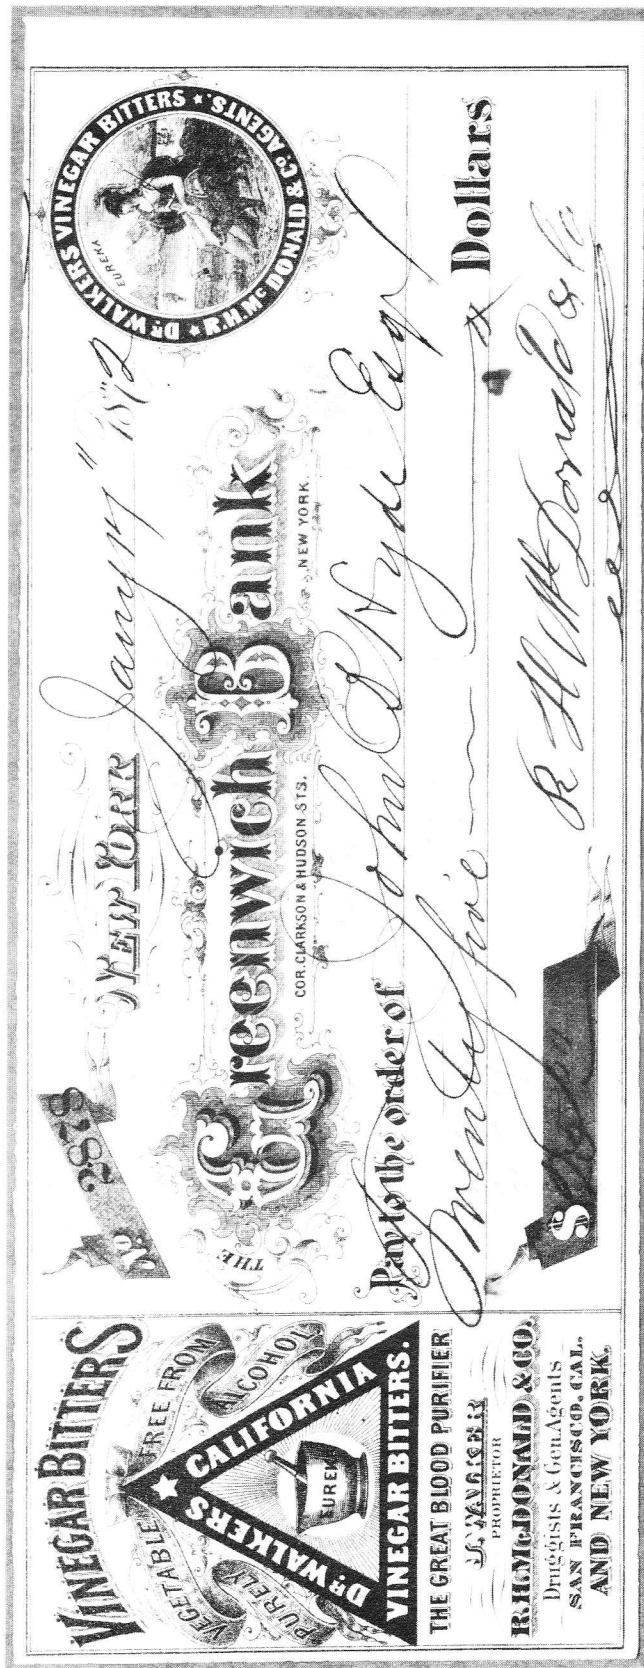 VINEGAR BITTERS
VEGETABLE FREE FROM
PURELY ALCOHOL
DR WALKERS ★ CALIFORNIA
EUREKA
VINEGAR BITTERS.
THE GREAT BLOOD PURIFIER
J. WALKER
PROPRIETOR
R.H. McDONALD & CO.
Druggists & Gen. Agents
SAN FRANCISCO, CAL.
AND NEW YORK.
No 2828
NEW YORK Jany 11" 1872
THE Greenwich Bank
COR. CLARKSON & HUDSON STS. NEW YORK.
Pay to the order of John S Hyde Esqr
Twenty five Dollars
$
R H McDonald & Co
DR WALKERS VINEGAR BITTERS ★ R.H. Mc DONALD & Co AGENTS. ★
EUREKA